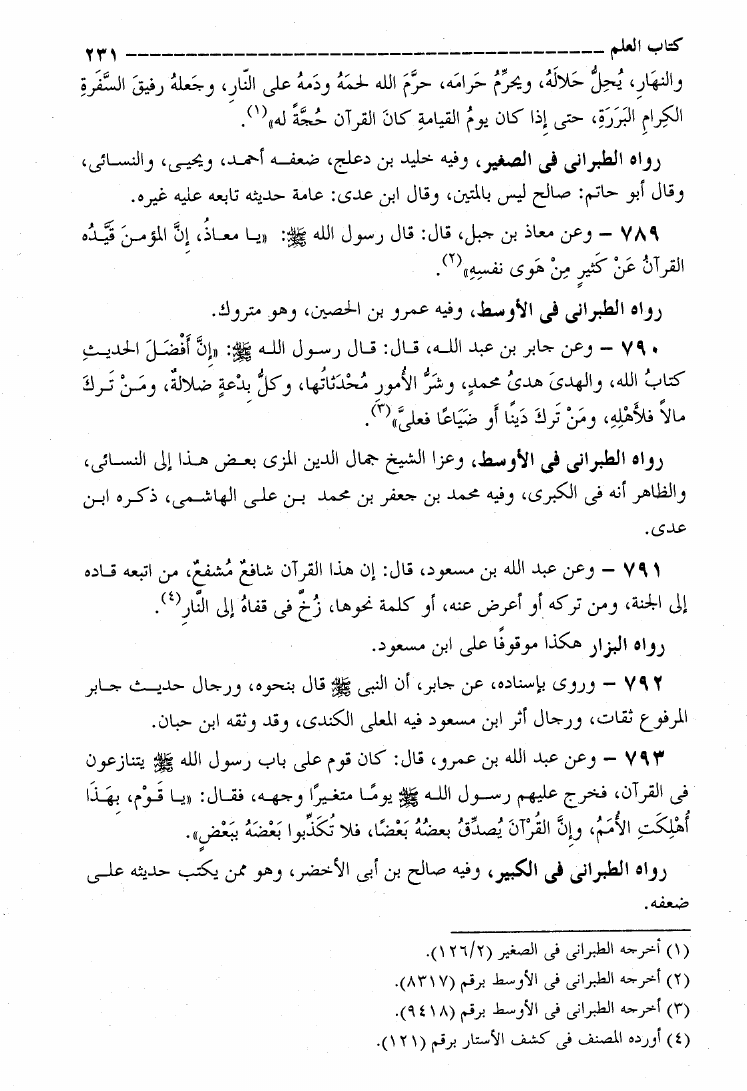 كتاب العلم ــــــــــــــــــــــــــــــــــــــــــــــــــــ ٢٣١
والنهارِ، يُحِلُّ حَلالَهُ، ويحرِّمُ حَرامَه، حرَّمَ الله لحمَهُ ودَمهُ على النّارِ، وجَعلهُ رفيقَ السَّفَرةِ
الكِرامِ البَرَرَةِ، حتى إذا كان يومُ القيامةِ كانَ القرآن حُجَّةً له»(١).
رواه الطبرانى فى الصغير، وفيه خليد بن دعلج، ضعفه أحمد، ويحيى، والنسائى،
وقال أبو حاتم: صالح ليس بالمتين، وقال ابن عدى: عامة حديثه تابعه عليه غيره.
٧٨٩ – وعن معاذ بن جبل، قال: قال رسول الله ﷺ: «يا معاذُ، إنَّ المؤمنَ قَيَّدُه
القرآنُ عَنْ كَثيرٍ مِنْ هَوى نفسهِ»(٢).
رواه الطبرانى فى الأوسط، وفيه عمرو بن الحصين، وهو متروك.
٧٩٠ – وعن جابر بن عبد الله، قال: قال رسول الله ﷺ: «إنَّ أَفْضَلَ الحديثِ
كتابُ الله، والهدىَ هدىُ محمدٍ، وشرُّ الأُمورِ مُحْدَثاتُها، وكلُّ بِدْعةٍ ضلالةٌ، ومَنْ تَركَ
مالاً فلأَهْلِهِ، ومَنْ تَركَ دَينًا أو ضيَاعًا فعلىَّ»(٣).
رواه الطبرانى فى الأوسط، وعزا الشيخ جمال الدين المزى بعض هذا إلى النسائى،
والظاهر أنه فى الكبرى، وفيه محمد بن جعفر بن محمد بن على الهاشمى، ذكره ابن
عدى.
٧٩١ – وعن عبد الله بن مسعود، قال: إن هذا القرآن شافعٌ مُشفعٌ، من اتبعه قاده
إلى الجنة، ومن تركه أو أعرض عنه، أو كلمة نحوها، زُخَّ فى قفاهُ إلى النَّارِ(٤).
رواه البزار هكذا موقوفًا على ابن مسعود.
٧٩٢ – وروى بإسناده، عن جابر، أن النبى ﷺ قال بنحوه، ورجال حديث جابر
المرفوع ثقات، ورجال أثر ابن مسعود فيه المعلى الكندى، وقد وثقه ابن حبان.
٧٩٣ – وعن عبد الله بن عمرو، قال: كان قوم على باب رسول الله ﷺ يتنازعون
فى القرآن، فخرج عليهم رسول الله ﷺ يومًا متغيرًا وجهه، فقال: «يا قَوْم، بِهَذَا
أُهْلِكَتِ الأُمَمُ، وإنَّ القُرْآنَ يُصدِّقُ بعضُهُ بَعْضًا، فلا تُكَذِّبوا بَعْضَهُ بِبَعْضٍ».
رواه الطبرانى فى الكبير، وفيه صالح بن أبى الأخضر، وهو ممن يكتب حديثه على
ضعفه.
(١) أخرجه الطبرانى فى الصغير (١٢٦/٢).
(٢) أخرجه الطبرانى فى الأوسط برقم (٨٣١٧).
(٣) أخرجه الطبرانى فى الأوسط برقم (٩٤١٨).
(٤) أورده المصنف فى كشف الأستار برقم (١٢١).